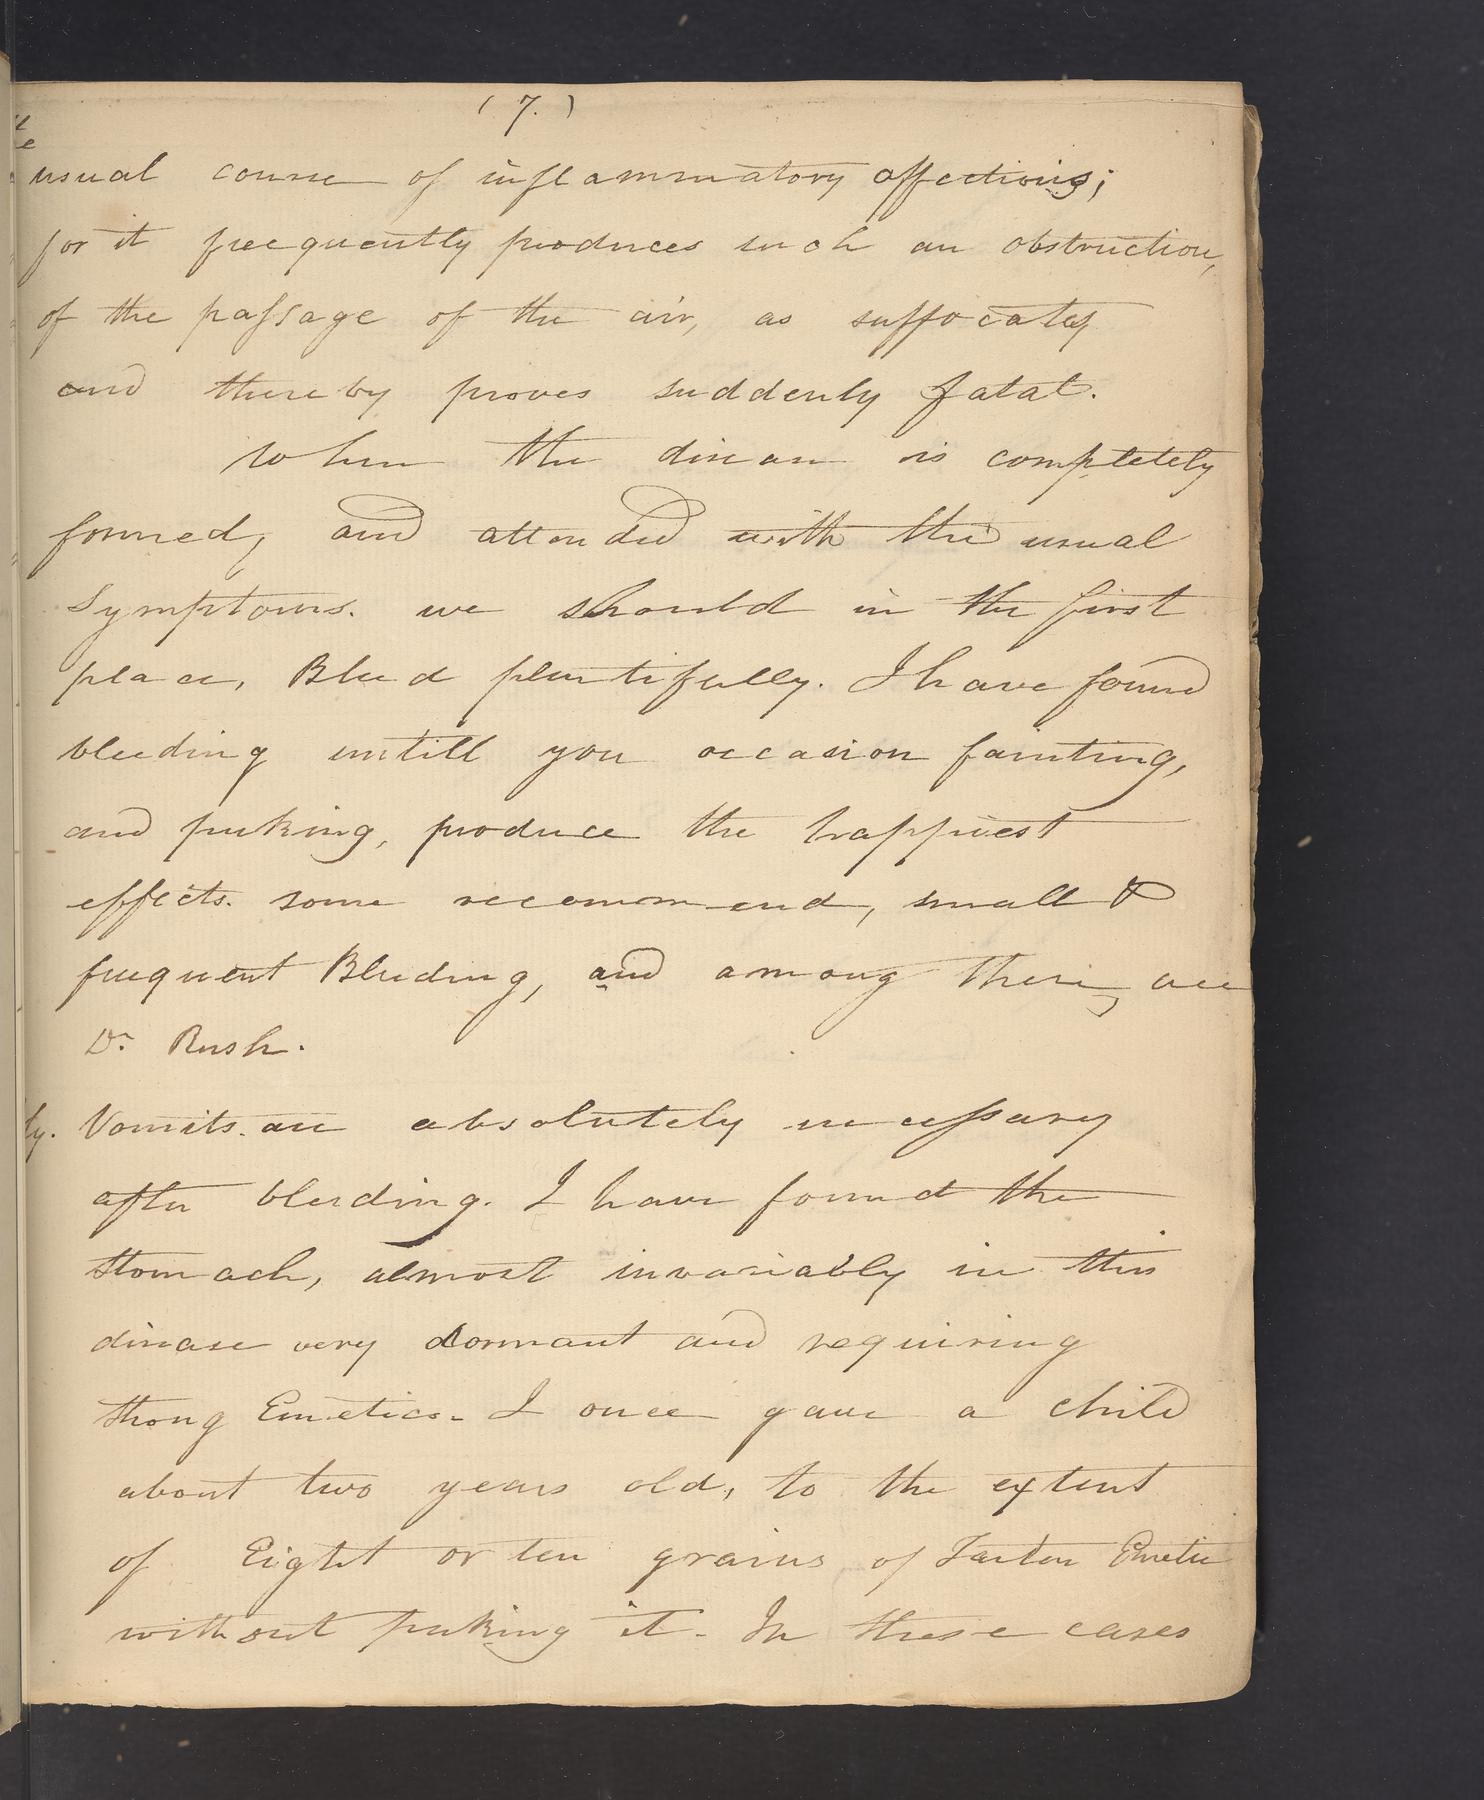 ( 7. )
usual course of inflammatory affections;
for it freequently produces such an obstruction,
of the passage of the air, as suffocates
and thereby proves suddenly fatal.
When the disease is completely
formed, and attended with the usual
Symptoms. we should in the first
place, Bleed plentifully. I have found
bleeding untill you occasion fainting,
and puking, produce the happiest
effects. some recommend, small &
frequent Bleeding, and among these, are
Dr. Rush.
ly. Vomits are absolutely necessary
after bleeding. I have found the
Stomach, almost invariably in this
disease very dormant and requiring
strong Emetics. I once gave a child
about two years old, to the extent
of Eight or ten grains of Tarter Emetic
without puking it. In these cases